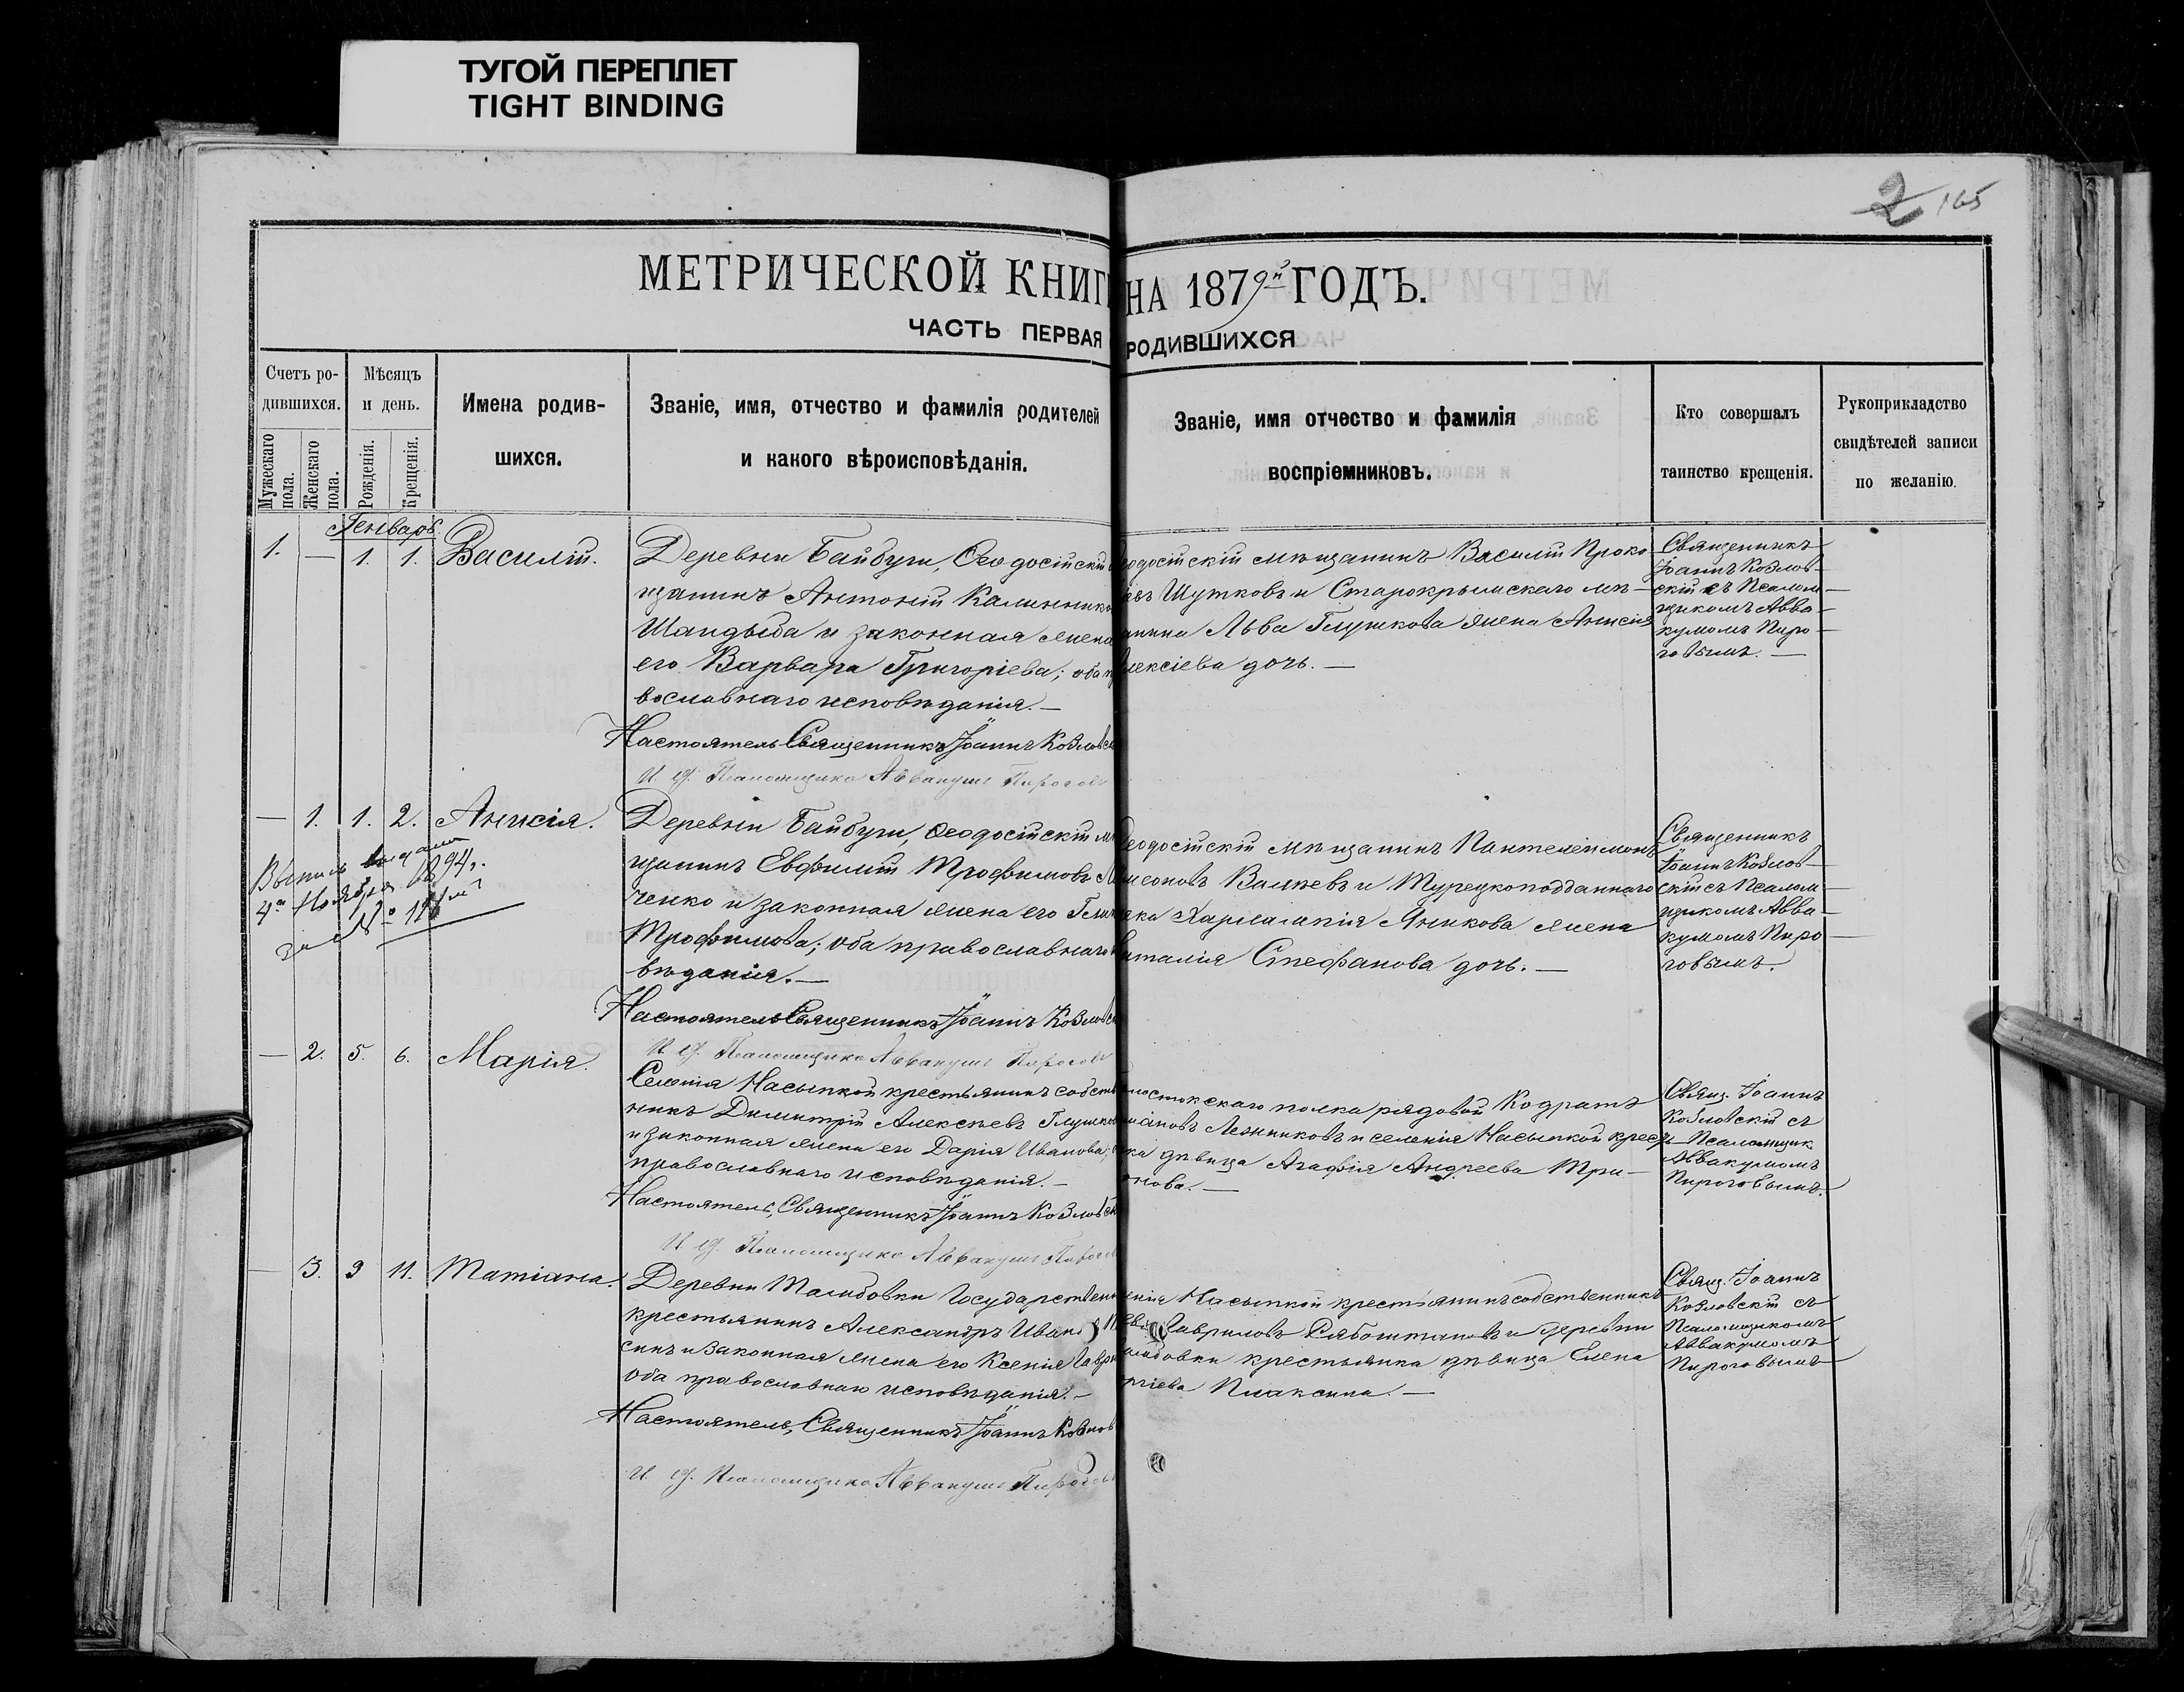 ТУГОЙ ПЕРЕПЛЕТ
TIGHT BINDING
2 165
МЕТРИЧЕСКОЙ КНИГ НА 1879й ГОДЪ.
ЧАСТЬ ПЕРВАЯ РОДИВШИХСЯ
Счетъ ро-
дившихся.
Мужескаго пола.
Женскаго пола.
Мѣсяцъ
и день.
Рожденія.
Крещенія.
Имена родив-
шихся.
Званіе, имя, отчество и фамилія родителей
и какого вѣроисповѣданія.
Званіе, имя отчество и фамилія
воспріемниковъ.
Кто совершалъ
таинство крещенія.
Рукоприкладство
свидѣтелей записи
по желанію.
Генварь
1. — 1. 1. Василій.
Деревни Байбуги, Ѳеодосійскій
щанинъ Антоній Калиннико
Шандыба и законная жена
его Варвара Григоріева; оба п
вославнаго исповѣданія. —
Настоятель Священникъ Іоаннъ Козловск
И. д. Псаломщика Аввакумъ Пирогов
одосійскій мѣщанинъ Василій Проко-
евъ Шутковъ и Старокрымскаго мѣ-
анина Льва Глушкова жена Анисія
лексіева дочь. —
Священникъ
Іоаннъ Козлов-
скій съ Псалом-
щикомъ Авва-
кумомъ Пиро-
говымъ. —
— 1. 1. 2. Анисія.
Выпись выдана
4го Ноября 1894 г.
за № 118мъ
Деревни Байбуги, Ѳеодосійскій мѣ
щанинъ Евфимій Трофимовъ
ченко и законная жена его
Трофимова; оба православнаго
вѣданія. —
Настоятель Священникъ Іоаннъ Козловск
И. д. Псаломщика Аввакумъ Пирогов
еодосійскій мѣщанинъ Пантелеимонъ
имеоновъ Валневъ и Турецкоподданнаго
ека Харлампія Яникова жена
аталія Стефанова дочь. —
Священникъ
Іоаннъ Козлов-
скій съ Псалом-
щикомъ Авва-
кумомъ Пиро-
говымъ.
— 2. 5. 6. Марія.
Селенія Насыпкой крестьянинъ собст
никъ Димитрій Алексѣевъ Глушко
и законная жена его Дарія Иванова;
православнаго исповѣданія. —
Настоятель, Священникъ Іоаннъ Козловск
И. д. Псаломщика Аввакумъ Пирогов
лостокскаго полка рядовой Кодратъ
міановъ Лезниковъ и селенія Насыпкой крест
нка дѣвица Агафія Андреева Три-
онова. —
Свящ. Іоаннъ
Козловскій съ
Псаломщик
Аввакумомъ
Пироговымъ.
— 3. 9 11. Татіана.
Деревни Тамбовки Государствен
крестьянинъ Александръ Иванов
синъ и законная жена его Ксенія Гаври
оба православнаго исповѣданія. —
Настоятель, Священникъ Іоаннъ Козлов
И. д. Псаломщика Аввакумъ Пирогов
енія Насыпкой крестьянинъ собственникъ
Гавриловъ Рябоштановъ и деревни
амбовки крестьянка дѣвица Елена
ргіева Плаксина. —
Свящ. Іоаннъ
Козловскій съ
Псаломщикомъ
Аввакумомъ
Пироговымъ